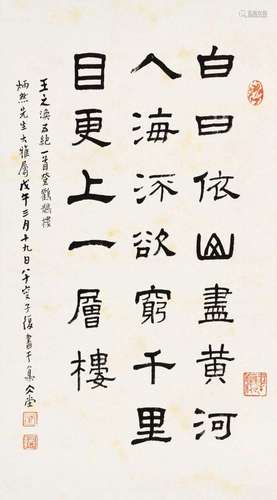 白日依山盡黃河
入海流欲窮千里
目更上一層樓
王之渙五絕一首登鸛鵲樓
炳然先生大雅屬戊午三月十九日八十叟子復書于集堂